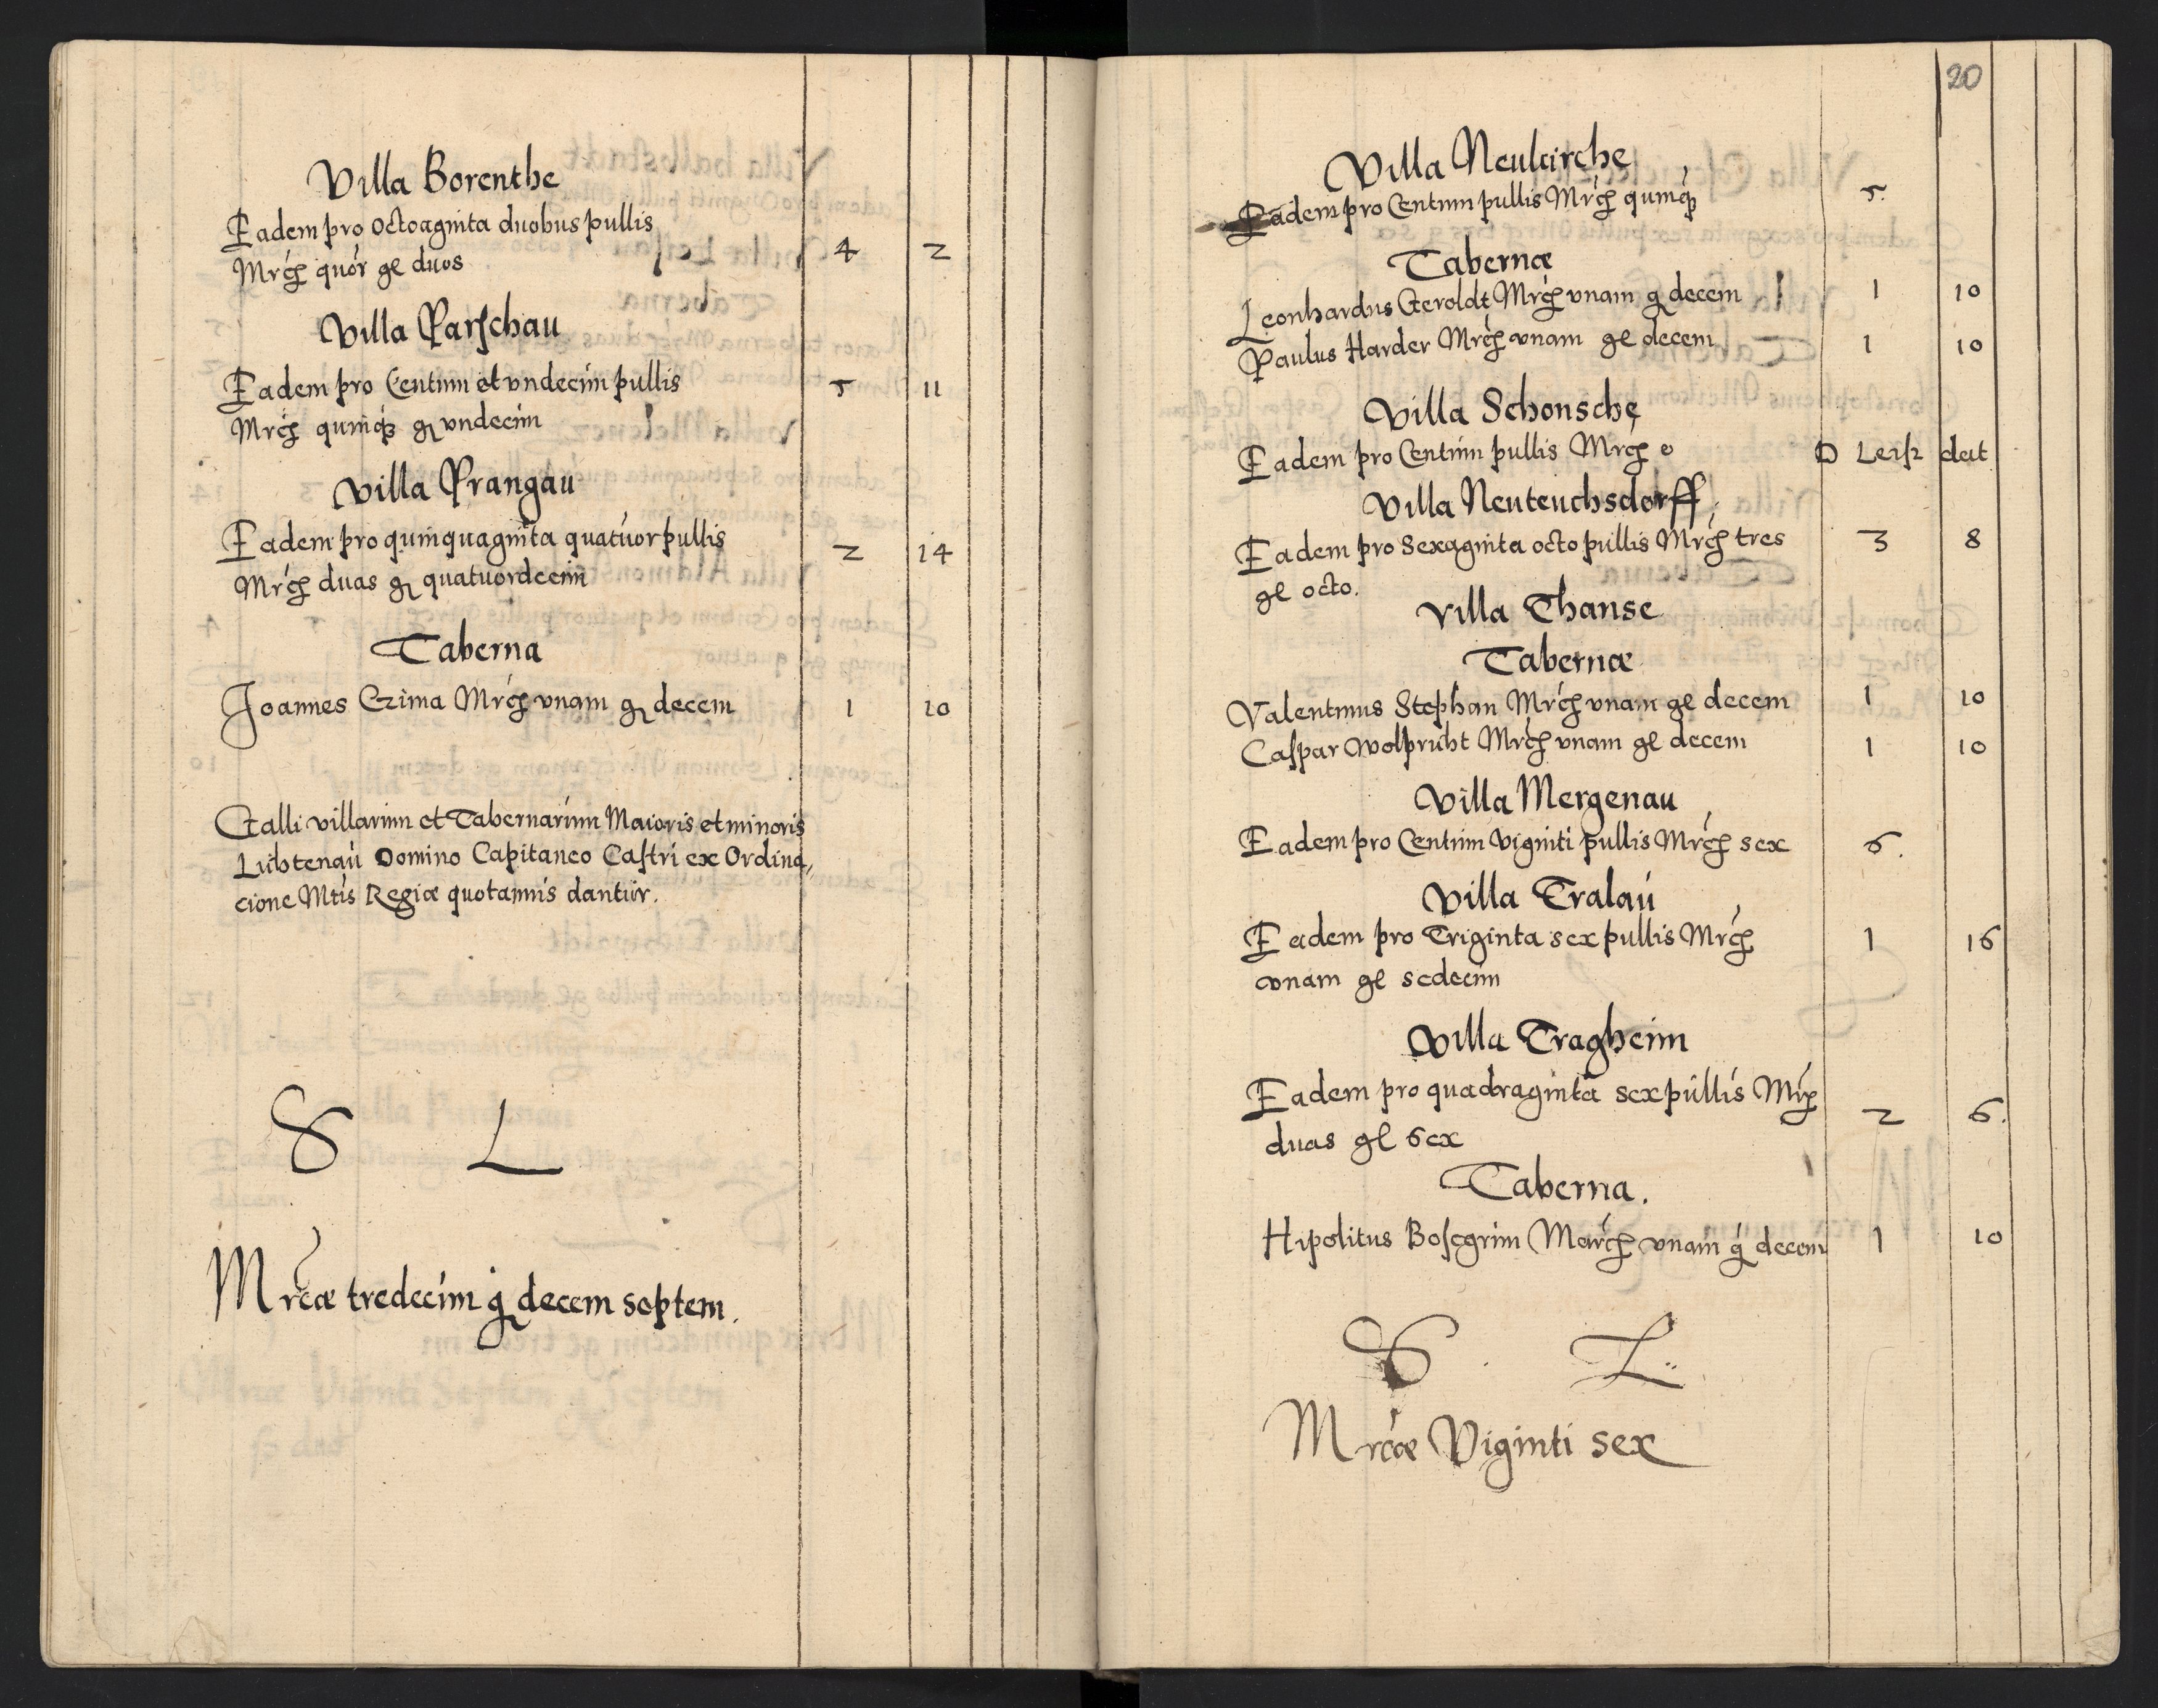 Villa Borenthe
Eadem pro octoaginta duobus pullis
Mrcę quor gl duos 4 2
Villa Parschau
Eadem pro Centum et vndecim pullis 5 11
Mrcę quinqȝ g vndecim
Villa Prangau
Eadem pro quinquaginta quatuor pullis 2 14
Mrcę duas g quatuordecim
Taberna
Joannes Czima Mrcę vnam g decem 1 10
Galli villarum et Tabernarum Maioris et minoris
Lubtenau Domino Capitaneo Castri ex Ordina,
cione Mtis Regiæ quotannis dantur.
S L
Mrcæ tredecim g decem septem.
20
Villa Neukirche
Eadem pro Centum pullis Mrcę quinqȝ 5.
Tabernæ
Leonhardus Geroldt Mrcę vnam g decem 1 10
Paulus Harder Mrcę vnam gl decem 1 10
Villa Schonsche
Eadem pro Centum pullis Mrcę o D Leisz dat
Villa Neuteuchsdorff
Eadem pro Sexaginta octo pullis Mrcę tres 3 8
gl octo.
Villa Thanse
Tabernæ
Valentinus Stephan Mrcę vnam gl decem 1 10
Caspar Wolpricht Mrcę vnam gl decem 1 10
Villa Mergenau
Eadem pro Centum Viginti pullis Mrcę sex 6.
Villa Tralau
Eadem pro Triginta sex pullis Mrcę 1 16
vnam gl sedecim
Villa Tragheim
Eadem pro quadraginta sex pullis Mrcę
duas gl sex 2 6.
Taberna.
Hipolitus Bosegrim Marcę vnam g decem 1 10
S L
Mrcæ Viginti sex